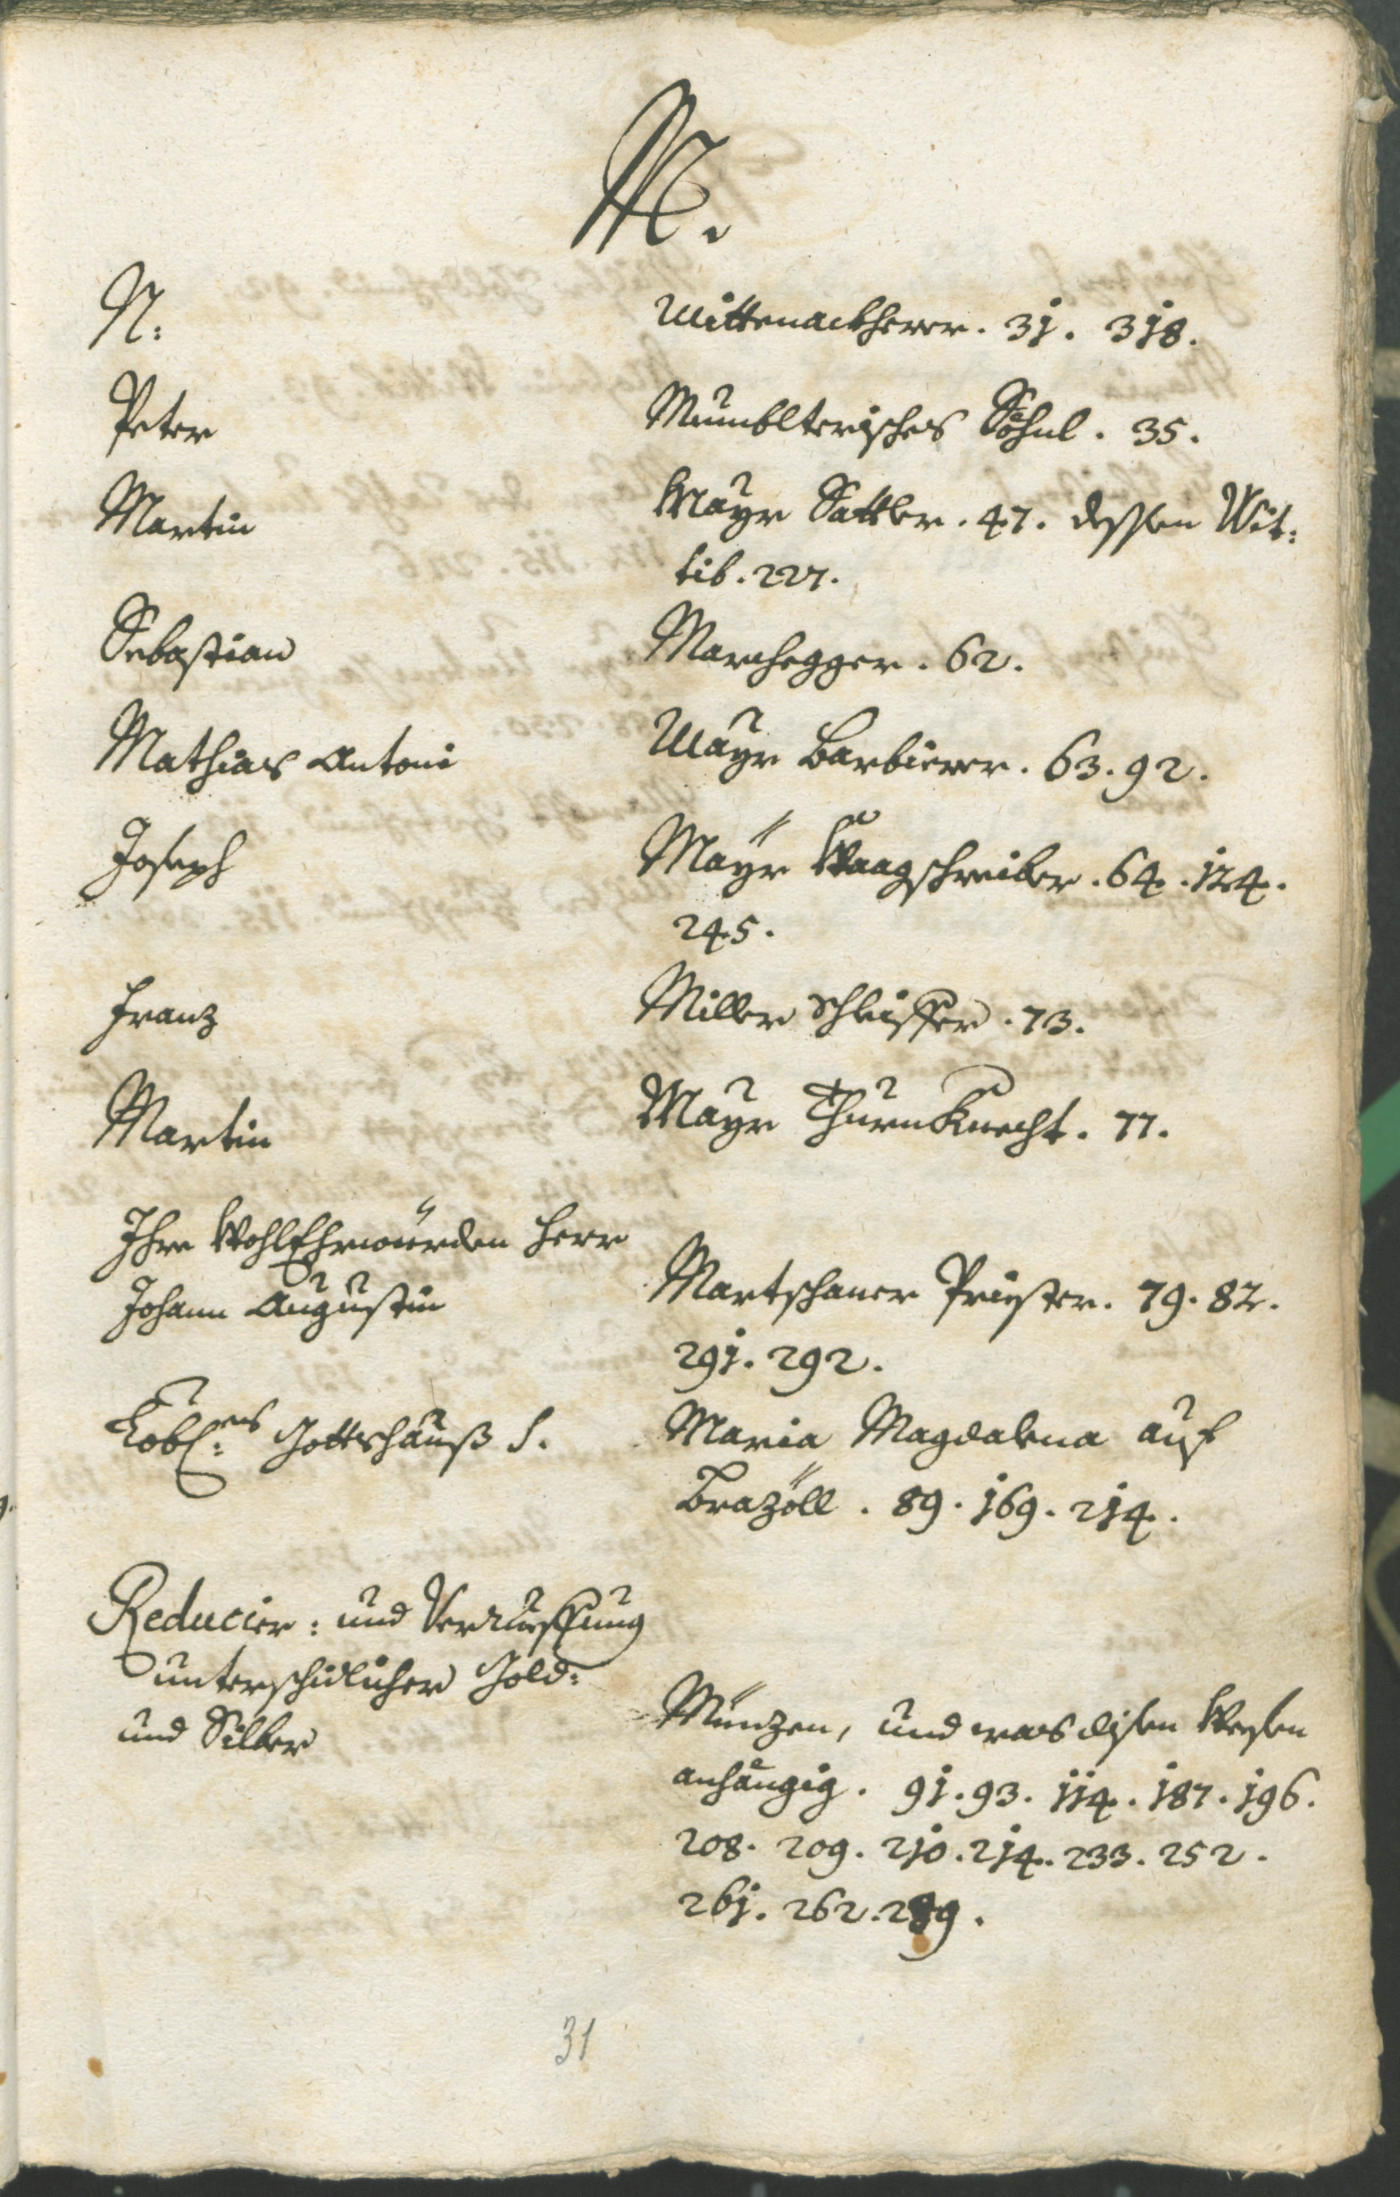 M.
N: Mittenackherer. 31. 318.
Peter Mumblterisches Söhnl. 35.
Martin Mayr Sattler. 47. dessen Wit:
tib. 227.
Sebastian Marchegger. 62.
Mathias Antoni Mayr Barbierer. 63. 92.
Joseph Maÿr Waagschreiber. 64. 124.
245.
Franz Miller Schleiffer. 73.
Martin Mayr ThurnKnecht. 77.
Ihre WohlEhrwürden Herr
Johann Augustin Martschaner Priester. 79. 82.
291. 292.
Lobl: Gottshauß S. Maria Magdalena auf
Brazöll. 89. 169. 214.
Reducier: und Verrueffung
unterschidlicher Gold:
und Silber Münzen, und was disen Wesen
anhängig. 91. 93. 114. 187. 196.
208. 209. 210. 214. 233. 252.
261. 262. 289.
31